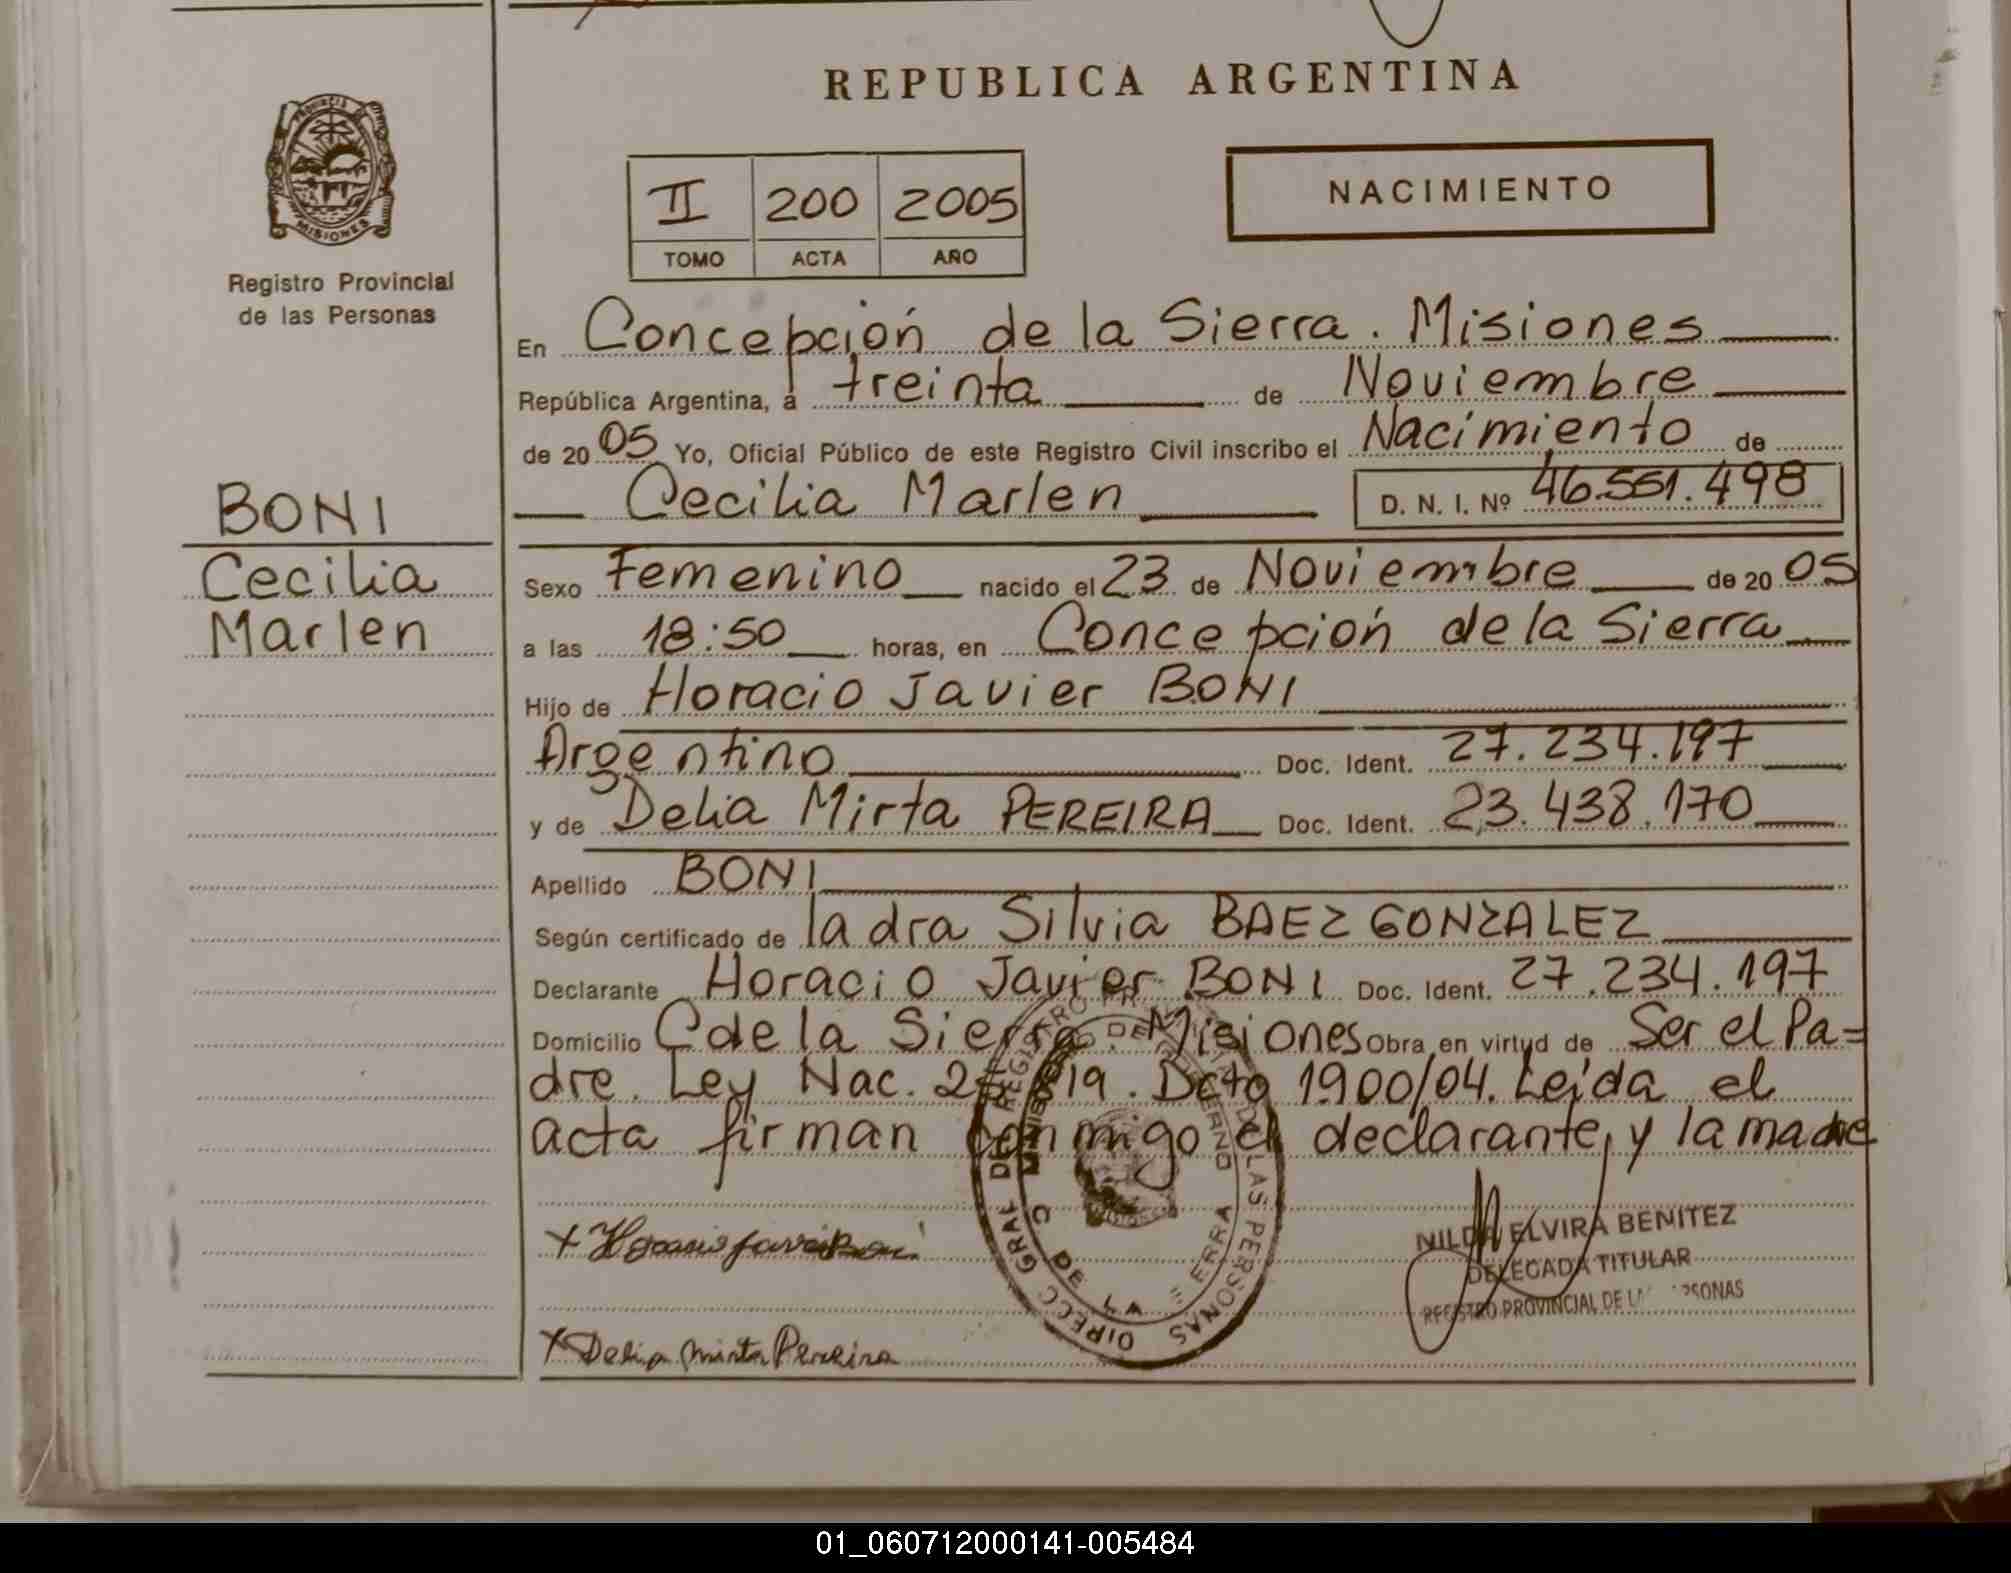 REPUBLICA ARGENTINA
PROVINCIA DE
MISIONES
Registro Provincial
de las Personas
II 200 2005
TOMO ACTA AÑO
NACIMIENTO
En Concepción de la Sierra. Misiones
República Argentina, a treinta de Noviembre
de 20 05 Yo, Oficial Público de este Registro Civil inscribo el Nacimiento de
Cecilia Marlen D. N. I. Nº 46.551.498
BONI
Cecilia
Marlen
Sexo Femenino nacido el 23 de Noviembre de 20 05
a las 18:50 horas, en Concepción de la Sierra
Hijo de Horacio Javier BONI
Argentino Doc. Ident. 27.234.197
y de Delia Mirta PEREIRA Doc. Ident. 23.438.170
Apellido BONI
Según certificado de la dra Silvia BAEZ GONZALEZ
Declarante Horacio Javier BONI Doc. Ident. 27.234.197
Domicilio C de la Sierra. Misiones Obra en virtud de Ser el Pa=
dre. Ley Nac. 25.819. Dcto 1900/04. Leída el
acta firman conmigo el declarante, y la madre
DIRECC GRAL DEL REGISTRO DE LAS PERSONAS
C DE LA SIERRA
NILDA ELVIRA BENITEZ
DELEGADA TITULAR
REGISTRO PROVINCIAL DE LAS PERSONAS
x Horacio Javier Boni
x Delia Mirta Pereira
01_060712000141-005484